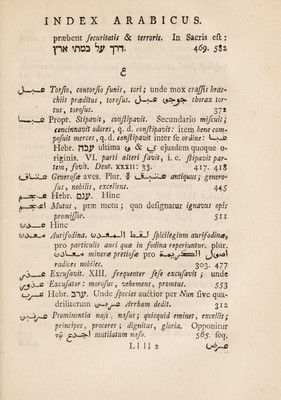 INDEX ARABICUS.
præbent securitatis & terroris. In Sacris est:
דרך על במתי ארץ 469. 582
ع
Torsio, contorsio funis, tori; unde mox crassis bra-
chiis præditus, torosus. thorax tor-
tus, torosus. 372
Propr. Stipavit, constipavit. Secundario miscuit;
concinnavit odores, q. d. constipavit: item bene com-
posuit merces, q. d. constipavit inter se ordine:
Hebr. ultima & ejusdem quoque o-
riginis. VI. parti alteri favit, i. c. stipavit par-
tem, fovit. Deut. XXXII: 33. 417. 418
Generosæ aves. Plur. antiquus; genero-
sus, nobilis, excellens. 445
Hebr. Hinc
Mutus, præ metu; quo designatur ignavus opis
promissor. 511
Hinc
Aurifodina. spicilegium aurifodinæ,
pro particulis auri quæ in fodina reperiuntur. plur.
mineræ pretiosæ pro
radices nobiles. 303. 477
Excusavit. XIII. frequenter sese excusavit; unde
Excusator: morosus, vehemens, promtus. 553
Hebr. ערב. Unde species auctior per Nun sive qua-
driliterum arrham dedit. 312
Prominentia nasi, nasus; quicquid eminet, excellit;
principes, proceres; dignitas, gloria. Opponitur
mutilatum naso. 565. seq.
Llll 2